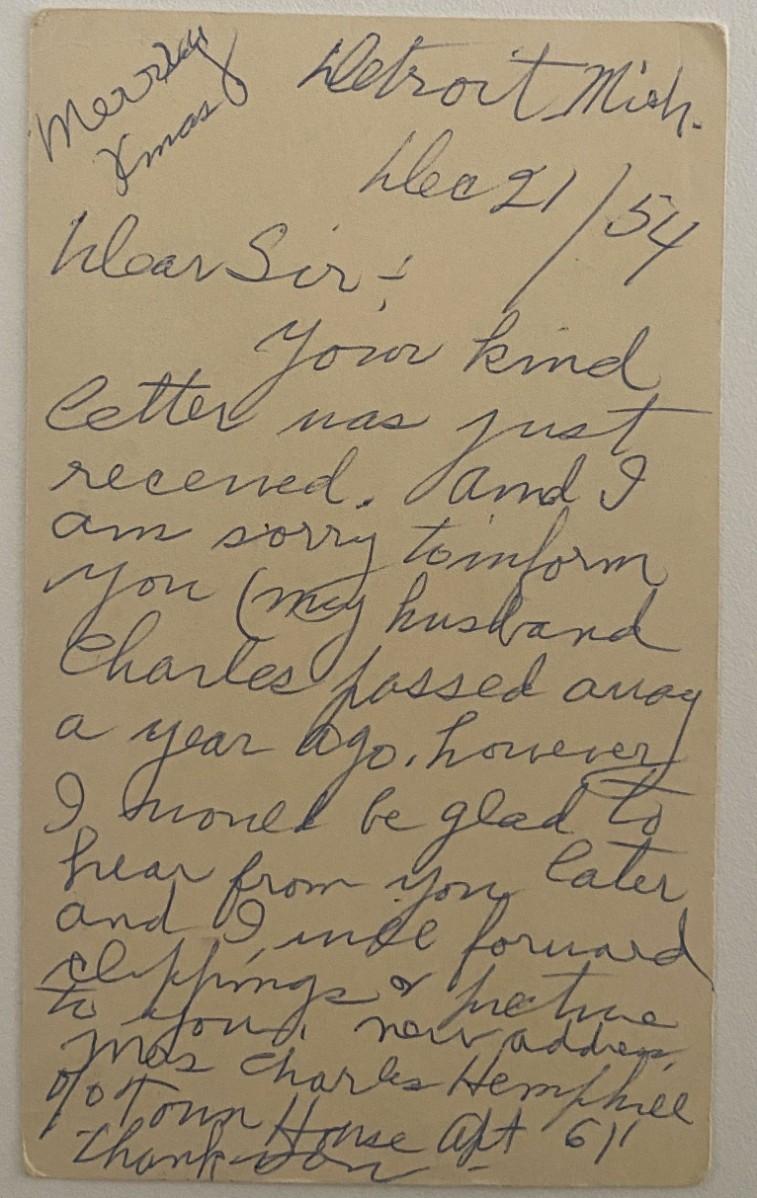 Merry
Xmas
Detroit Mich.
Dec 21/54
Dear Sir:
Your kind
letter was just
received. And I
am sorry to inform
you (my husband
Charles passed away
a year ago. however
I would be glad to
hear from you later
and I will forward
clippings & picture
to you. new address
Mrs Charles Hemphill
c/o Town House Apt 611
Thank You